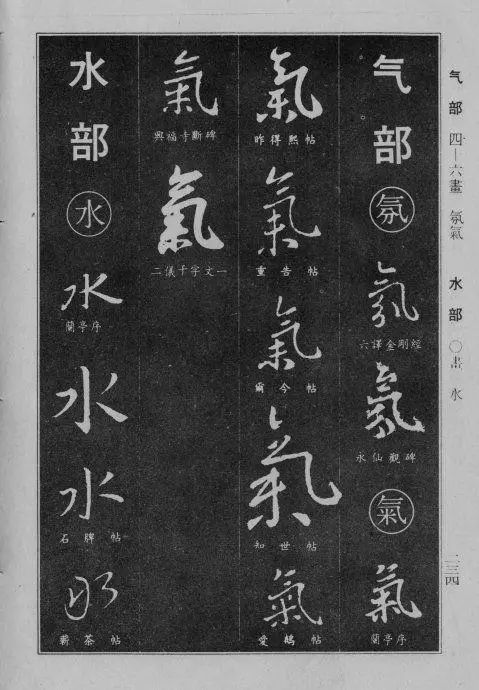 气部 四—六畫 氛氣 水部 〇畫 水
二三四
气部
氛
氛
六譯金剛經
氛
永仙觀碑
氣
氣
蘭亭序
氣
昨得熙帖
氣
重告帖
氣
爾今帖
氣
知世帖
氣
愛鵝帖
氣
興福寺斷碑
氣
二儀千字文一
水部
水
水
蘭亭序
水
水
石牌帖
水
蘄茶帖